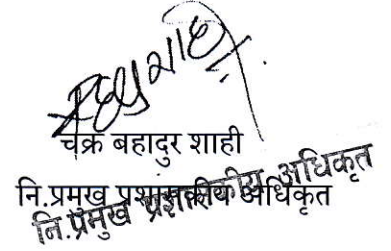 चक्र बहादुर शाही
नि.प्रमुख प्रशासकीय अधिकृत
नि.प्रमुख प्रशासकीय अधिकृत